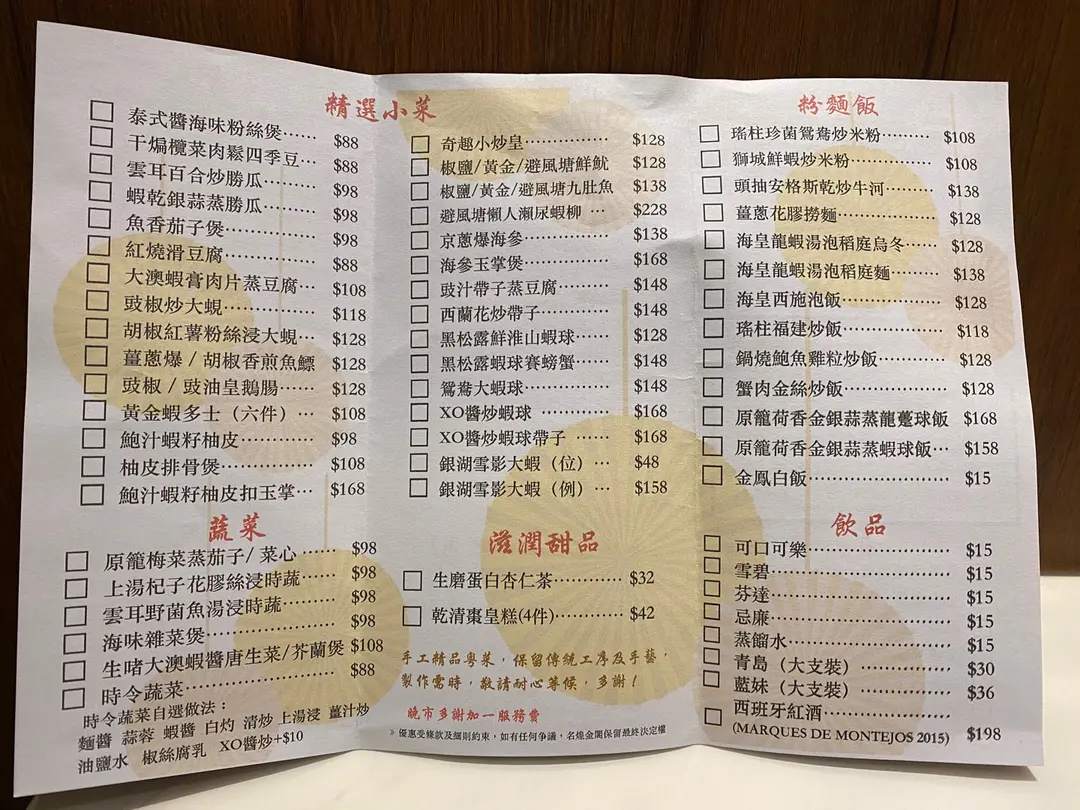 精選小菜
泰式醬海味粉絲煲…… $88
干煸欖菜肉鬆四季豆… $88
雲耳百合炒勝瓜……… $98
蝦乾銀絲蒜蒸勝瓜…… $98
魚香茄子煲…………… $98
紅燒滑豆腐…………… $88
大澳蝦膏肉片蒸豆腐… $108
豉椒炒大蜆…………… $118
胡椒紅薯粉絲浸大蜆… $128
薑蔥爆 / 胡椒香煎魚鰾 $128
豉椒 / 豉油皇鵝腸…… $128
黃金蝦多士（六件）… $108
鮑汁蝦籽柚皮………… $98
柚皮排骨煲…………… $108
鮑汁蝦籽柚皮扣玉掌… $168
奇趣小炒皇…………… $128
椒鹽/黃金/避風塘鮮魷 $128
椒鹽/黃金/避風塘九肚魚 $138
避風塘懶人瀨尿蝦柳 … $228
京蔥爆海參…………… $138
海參玉掌煲…………… $168
豉汁帶子蒸豆腐……… $148
西蘭花炒帶子………… $148
黑松露鮮淮山蝦球…… $128
黑松露蝦球賽螃蟹…… $148
鴛鴦大蝦球…………… $148
XO醬炒蝦球 ………… $168
XO醬炒蝦球帶子 …… $168
銀湖雪影大蝦（位）… $48
銀湖雪影大蝦（例）… $158
粉麵飯
瑤柱珍菌鴛鴦炒米粉……… $108
獅城鮮蝦炒米粉…………… $108
頭抽安格斯乾炒牛河……… $138
薑蔥花膠撈麵……………… $128
海皇龍蝦湯泡稻庭烏冬…… $128
海皇龍蝦湯泡稻庭麵……… $138
海皇西施泡飯……………… $128
瑤柱福建炒飯……………… $118
鍋燒鮑魚雞粒炒飯………… $128
蟹肉金絲炒飯……………… $128
原籠荷香金銀蒜蒸龍躉球飯 $168
原籠荷香金銀蒜蒸蝦球飯… $158
金鳳白飯…………………… $15
蔬菜
原籠梅菜蒸茄子/ 菜心 …… $98
上湯杞子花膠絲浸時蔬…… $98
雲耳野菌魚湯浸時蔬……… $98
海味雜菜煲………………… $98
生啫大澳蝦醬唐生菜/芥蘭煲 $108
時令蔬菜…………………… $88
時令蔬菜自選做法：
麵醬 蒜蓉 蝦醬 白灼 清炒 上湯浸 薑汁炒
油鹽水 椒絲腐乳 XO醬炒+$10
滋潤甜品
生磨蛋白杏仁茶………… $32
乾清棗皇糕(4件)……… $42
手工精品粵菜，保留傳統工序及手藝，
製作需時，敬請耐心等候，多謝！
晚市多謝加一服務費
優惠受條款及細則約束，如有任何爭議，名煌金閣保留最終決定權
飲品
可口可樂………………… $15
雪碧……………………… $15
芬達……………………… $15
忌廉……………………… $15
蒸餾水…………………… $15
青島（大支裝）………… $30
藍妹（大支裝）………… $36
西班牙紅酒………………
(MARQUES DE MONTEJOS 2015) $198